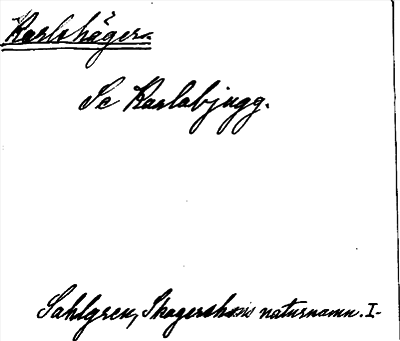 Karlshäger.
Se Karlabjugg.
Sahlgren, Skagershults naturnamn. I-